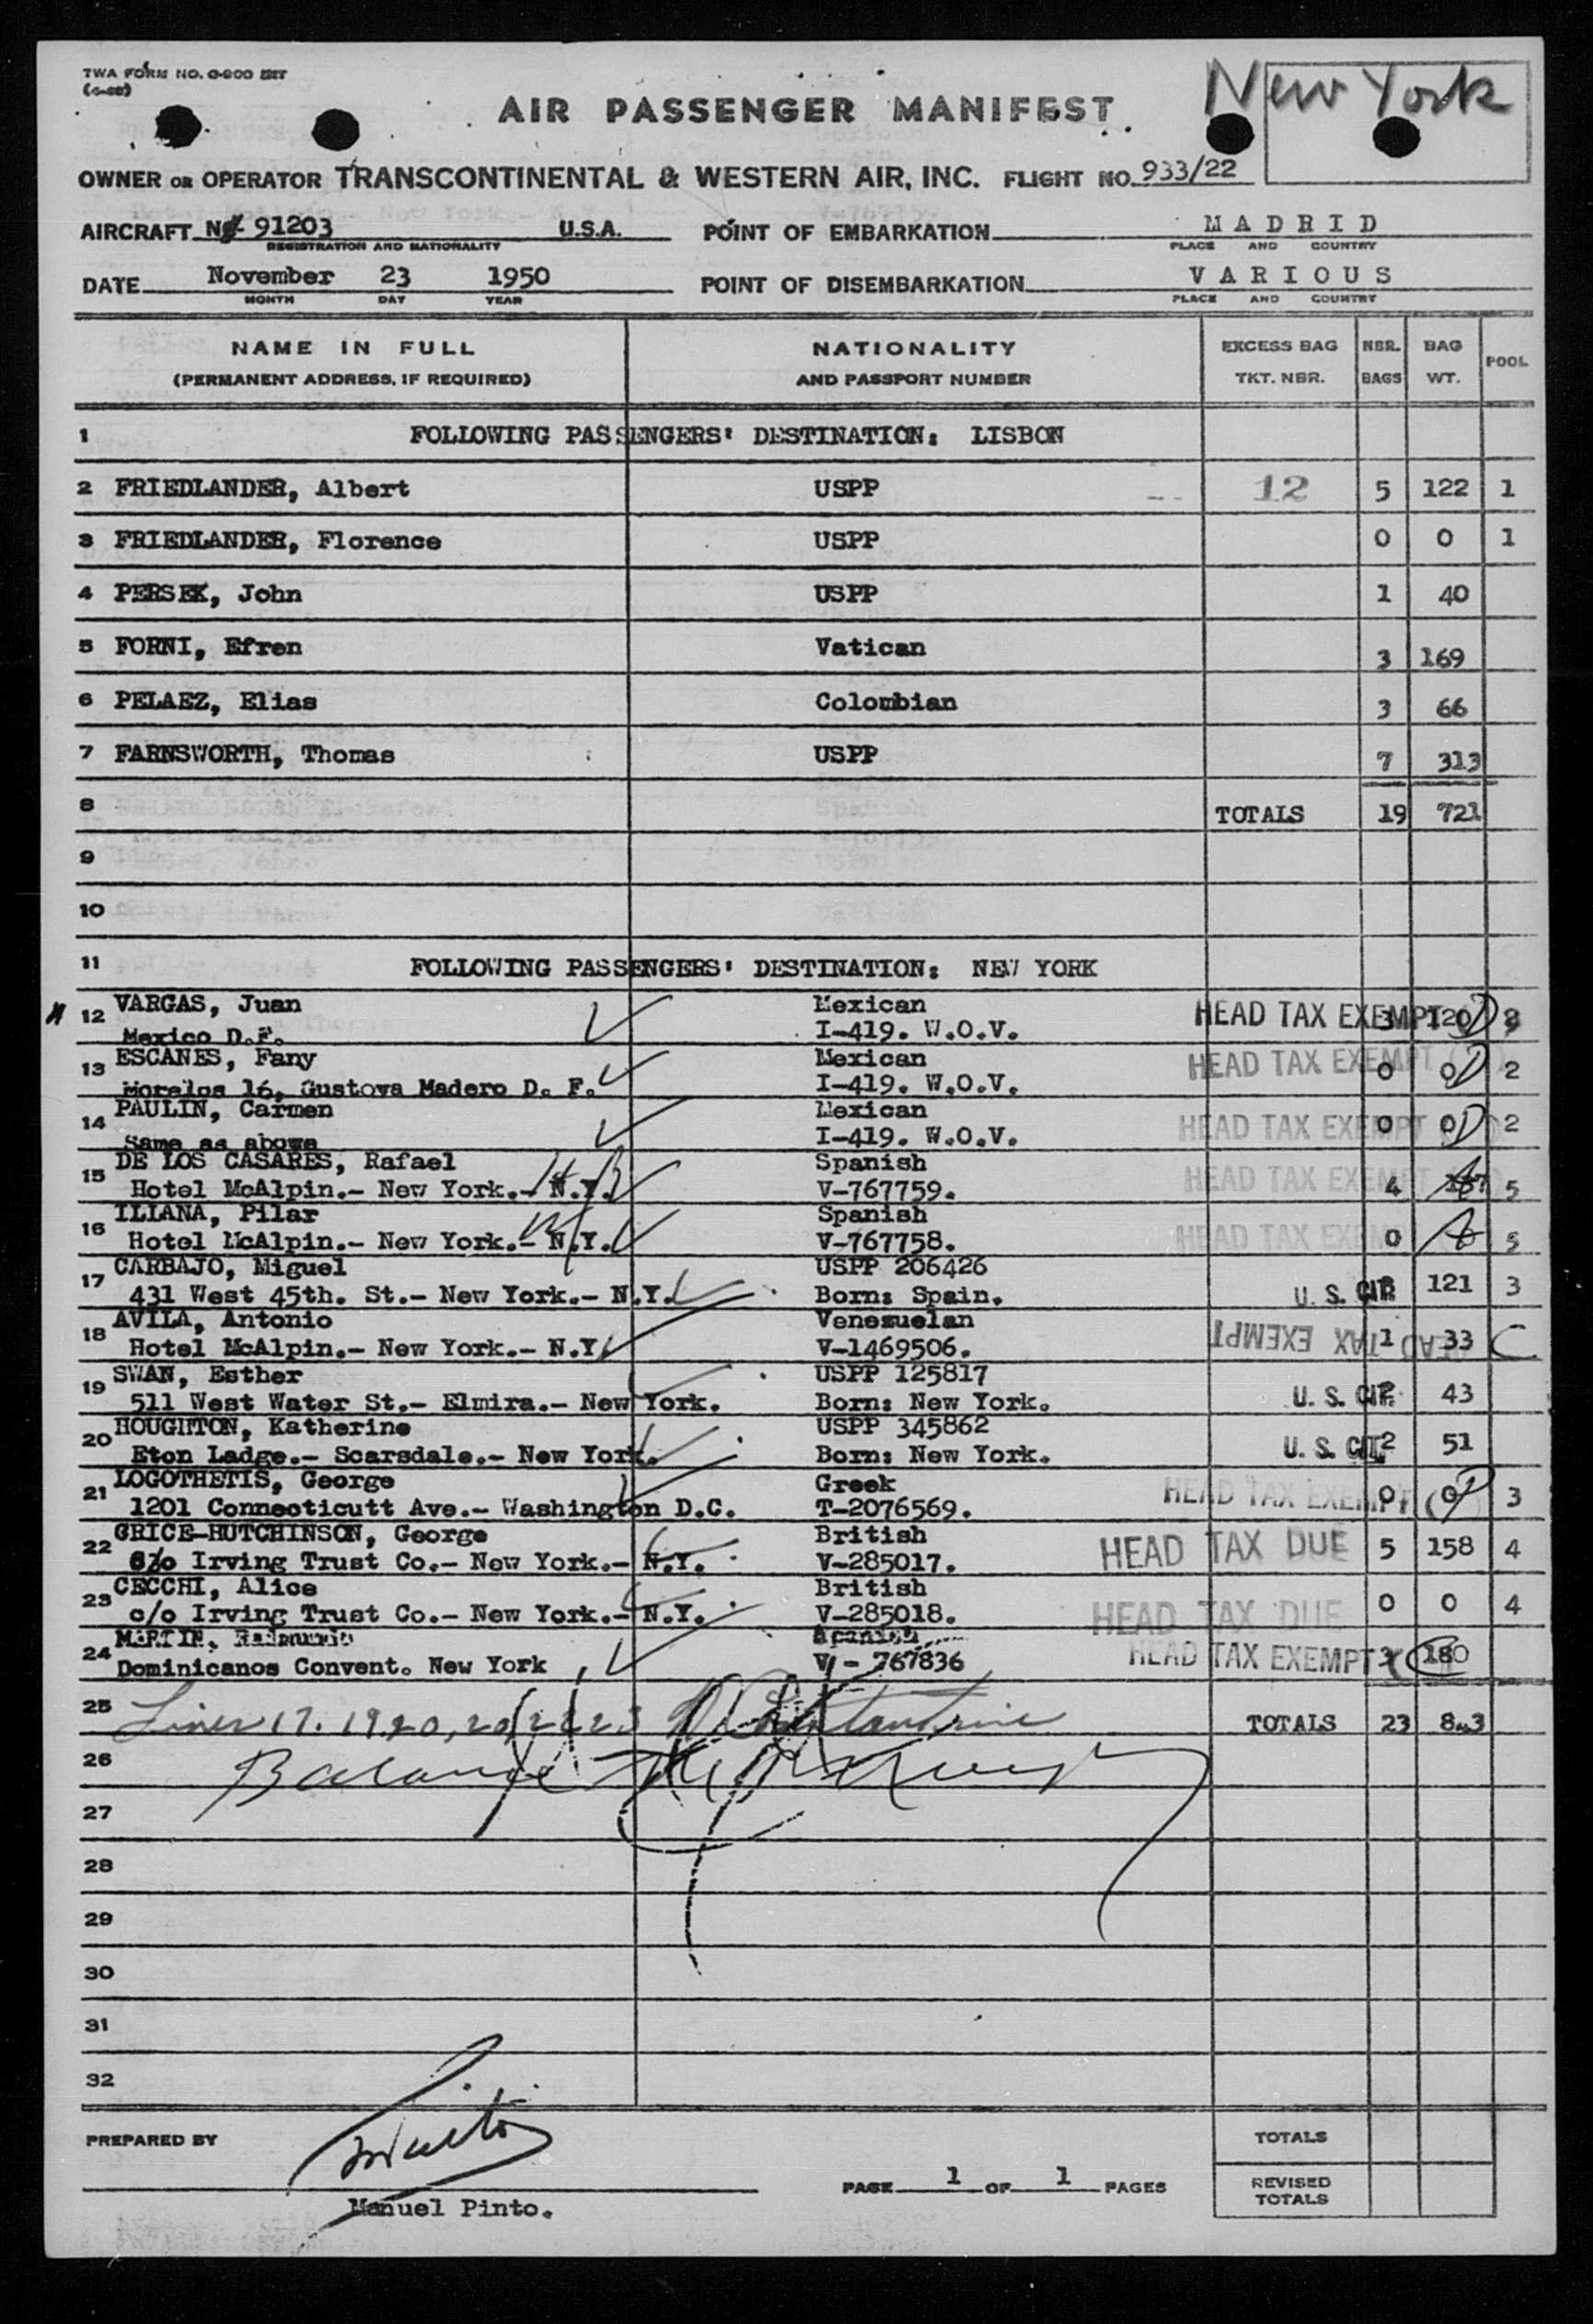 TWA FORM NO. O-800 INT
New York
AIR PASSENGER MANIFEST
OWNER OR OPERATOR TRANSCONTINENTAL & WESTERN AIR, INC. FLIGHT NO. 933/22
AIRCRAFT N 91203 U.S.A. POINT OF EMBARKATION MADRID
REGISTRATION AND NATIONALITY PLACE AND COUNTRY
DATE November 23 1950 POINT OF DISEMBARKATION VARIOUS
MONTH DAY YEAR PLACE AND COUNTRY
NAME IN FULL NATIONALITY EXCESS BAG NBR. BAG POOL
(PERMANENT ADDRESS, IF REQUIRED) AND PASSPORT NUMBER TKT. NBR. BAGS WT.
1 FOLLOWING PASSENGERS' DESTINATION: LISBON
2 FRIEDLANDER, Albert USPP 12 5 122 1
3 FRIEDLANDER, Florence USPP 0 0 1
4 PERSEK, John USPP 1 40
5 FORNI, Efren Vatican 3 169
6 PELAEZ, Elias Colombian 3 66
7 FARNSWORTH, Thomas USPP 7 313
8 TOTALS 19 721
9
10
11 FOLLOWING PASSENGERS' DESTINATION: NEW YORK
12 VARGAS, Juan Mexican HEAD TAX EXEMPT 3 120 2
Mexico D.F. I-419. W.O.V.
13 ESCANES, Fany Mexican HEAD TAX EXEMPT 0 0 2
Morelos 16, Gustova Madero D. F. I-419. W.O.V.
14 PAULIN, Carmen Mexican HEAD TAX EXEMPT 0 0 2
Same as above I-419. W.O.V.
15 DE LOS CASARES, Rafael Spanish HEAD TAX EXEMPT 4 5
Hotel McAlpin.- New York.- N.Y. V-767759.
16 ILIANA, Pilar Spanish HEAD TAX EXEMPT 0 5
Hotel McAlpin.- New York.- N.Y. V-767758.
17 CARBAJO, Miguel USPP 206426 U. S. CIT. 121 3
431 West 45th. St.- New York.- N.Y. Born: Spain.
18 AVILA, Antonio Venesuelan HEAD TAX EXEMPT 1 33
Hotel McAlpin.- New York.- N.Y. V-1469506.
19 SWAN, Esther USPP 125817 U. S. CIT. 2 43
511 West Water St.- Elmira.- New York. Born: New York.
20 HOUGHTON, Katherine USPP 345862 U. S. CIT. 2 51
Eton Ladge.- Scarsdale.- New York. Born: New York.
21 LOGOTHETIS, George Greek HEAD TAX EXEMPT 0 0 3
1201 Connecticutt Ave.- Washington D.C. T-2076569.
22 GRICE-HUTCHINSON, George British HEAD TAX DUE 5 158 4
c/o Irving Trust Co.- New York.- N.Y. V-285017.
23 CECCHI, Alice British HEAD TAX DUE 0 0 4
c/o Irving Trust Co.- New York.- N.Y. V-285018.
24 MARTIN, Spanish HEAD TAX EXEMPT 3 180
Dominicanos Convent. New York V - 767836
25 Lines 17. 19, 20, TOTALS 23
26 Balance
27
28
29
30
31
32
PREPARED BY TOTALS
PAGE 1 OF 1 PAGES REVISED TOTALS
Manuel Pinto.